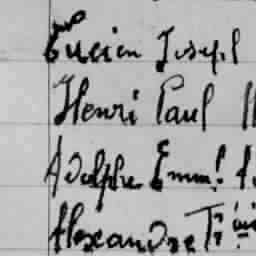 Lucien Joseph
Henri Paul
Adolphe Emm!
Alexandre